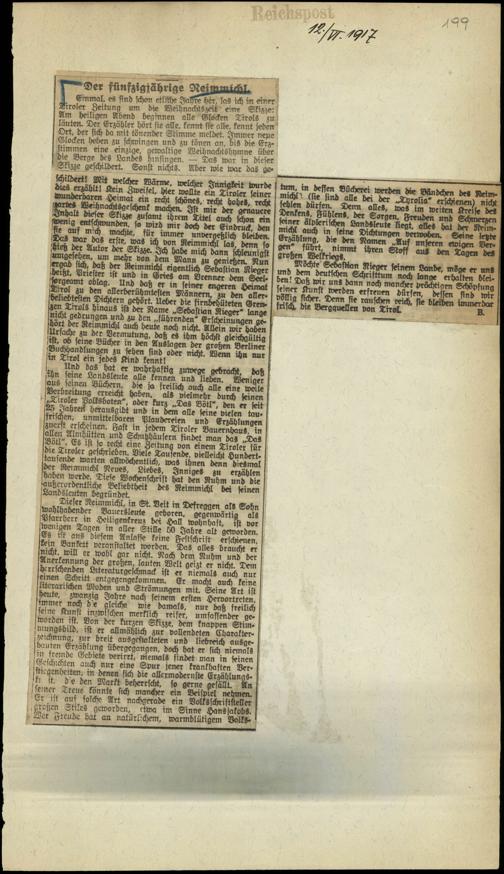 Reichspost
12./VI. 1917
199
Der fünfzigjährige Reimmichl.
Einmal, es sind schon etliche Jahre her, las ich in einer
Tiroler Zeitung um die Weihnachtszeit eine Skizze:
Am heiligen Abend beginnen alle Glocken Tirols zu
läuten. Der Erzähler hört sie alle, kennt sie alle, kennt jeden
Ort, der sich da mit tönender Stimme meldet. Immer neue
Glocken heben zu schwingen und zu tönen an, bis die Erz-
stimmen eine einzige, gewaltige Weihnachtshymne über
die Berge des Landes hinsingen. — Das war in dieser
Skizze geschildert. Sonst nichts. Aber wie war das ge-
schildert! Mit welcher Wärme, welcher Innigkeit wurde
dies erzählt! Kein Zweifel, hier wollte ein Tiroler seiner
wunderbaren Heimat ein recht schönes, recht hohes, recht
zartes Weihnachtsgeschenk machen. Ist mir der genauere
Inhalt dieser Skizze zusamt ihrem Titel auch schon ein
wenig entschwunden, so wird mir doch der Eindruck, den
sie auf mich machte, für immer unvergeßlich bleiben.
Das war das erste, was ich von Reimmichl las, denn so
hieß der Autor der Skizze. Ich habe mich dann schleunigst
umgesehen, um mehr von dem Mann zu genießen. Nun
ergab sich, daß der Reimmichl eigentlich Sebastian Rieger
heißt, Priester ist und in Gries am Brenner dem Seel-
sorgeamt oblag. Und daß er in seiner engeren Heimat
Tirol zu den allerberühmtesten Männern, zu den aller-
beliebtesten Dichtern gehört. Ueber die firnbehüteten Gren-
zen Tirols hinaus ist der Name „Sebastian Rieger" lange
nicht gedrungen und zu den „führenden" Erscheinungen ge-
hört der Reimmichl auch heute noch nicht. Allein wir haben
Ursache zu der Vermutung, daß es ihm höchst gleichgültig
ist, ob seine Bücher in den Auslagen der großen Berliner
Buchhandlungen zu sehen sind oder nicht. Wenn ihn nur
in Tirol ein jedes Kind kennt!
Und das hat er wahrhaftig zuwege gebracht, daß
ihn seine Landsleute alle kennen und lieben. Weniger
aus seinen Büchern, die ja freilich auch alle eine weite
Verbreitung erreicht haben, als vielmehr durch seinen
„Tiroler Volksboten", oder kurz „Das Bötl", den er seit
25 Jahren herausgibt und in dem alle seine vielen tau-
frischen, unmittelbaren Plaudereien und Erzählungen
zuerst erscheinen. Fast in jedem Tiroler Bauernhaus, in
allen Almhütten und Schutzhäusern findet man das „Das
Bötl". Es ist so recht eine Zeitung von einem Tiroler für
die Tiroler geschrieben. Viele Tausende, vielleicht Hundert-
tausende warten allwöchentlich, was ihnen denn diesmal
der Reimmichl Neues, Liebes, Inniges zu erzählen
haben werde. Diese Wochenschrift hat den Ruhm und die
außerordentliche Beliebtheit des Reimmichl bei seinen
Landsleuten begründet.
Dieser Reimmichl, in St. Veit in Defreggen als Sohn
wohlhabender Bauersleute geboren, gegenwärtig als
Pfarrherr in Heiligenkreuz bei Hall wohnhaft, ist vor
wenigen Tagen in aller Stille 50 Jahre alt geworden.
Es ist aus diesem Anlasse keine Festschrift erschienen,
kein Bankett veranstaltet worden. Das alles braucht er
nicht, will er wohl gar nicht. Nach dem Ruhm und der
Anerkennung der großen, lauten Welt geizt er nicht. Dem
herrschenden Literaturgeschmack ist er niemals auch nur
einen Schritt entgegengekommen. Er macht auch keine
literarischen Moden und Strömungen mit. Seine Art ist
heute, zwanzig Jahre nach seinem ersten Hervortreten,
immer noch die gleiche wie damals, nur daß freilich
seine Kunst inzwischen merklich reifer, umfassender ge-
worden ist. Von der kurzen Skizze, dem knappen Stim-
mungsbild, ist er allmählich zur vollendeten Charakter-
zeichnung, zur breit ausgestalteten und liebreich ausge-
bauten Erzählung übergegangen, doch hat er sich niemals
in fremde Gebiete verirrt, niemals findet man in seinen
Geschichten auch nur eine Spur jener krankhaften Ver-
stiegenheiten, in denen sich die allermodernste Erzählungs-
kunst, die den Markt beherrscht, so gerne gefällt. An
seiner Treue könnte sich mancher ein Beispiel nehmen.
Er ist auf solche Art nachgerade ein Volksschriftsteller
großen Stiles geworden, etwa im Sinne Hansjakobs.
Wer Freude hat an natürlichem, warmblütigem Volks-
tum, in dessen Bücherei werden die Bändchen des Reim-
michl (sie sind alle bei der „Tyrolia" erschienen) nicht
fehlen dürfen. Denn alles, was im weiten Kreise des
Denkens, Fühlens, der Sorgen, Freuden und Schmerzen
seiner älplerischen Landsleute liegt, alles das hat der Reim-
michl auch in seine Dichtungen verwoben. Seine letzte
Erzählung, die den Namen „Auf unseren ewigen Ber-
gen" führt, nimmt ihren Stoff aus den Tagen des
großen Weltkriegs.
Möchte Sebastian Rieger seinem Lande, möge er uns
und dem deutschen Schrifttum noch lange erhalten blei-
ben! Daß wir uns dann noch mancher prächtigen Schöpfung
seiner Kunst werden erfreuen dürfen, dessen sind wir
völlig sicher. Denn sie rauschen reich, sie bleiben immerdar
frisch, die Bergquellen von Tirol.
B.